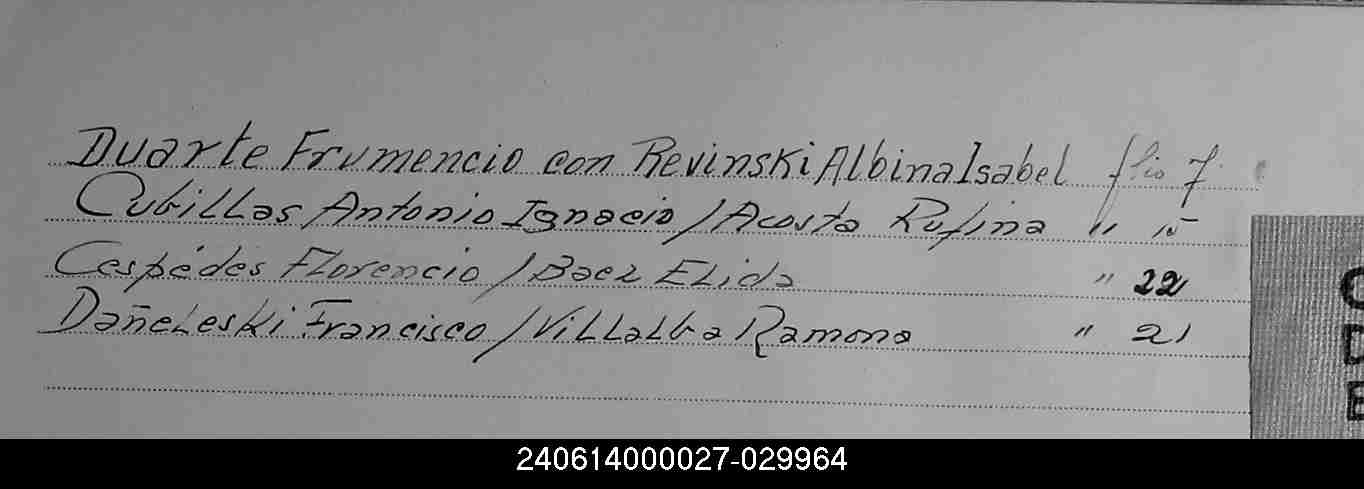 Duarte Frumencio con Revinski Albina Isabel flio 7
Cubillas Antonio Ignacio / Acosta Rufina " 15
Cespédes Florencio / Baez Elida " 22
Dañeleski Francisco / Villalba Ramona " 21
240614000027-029964